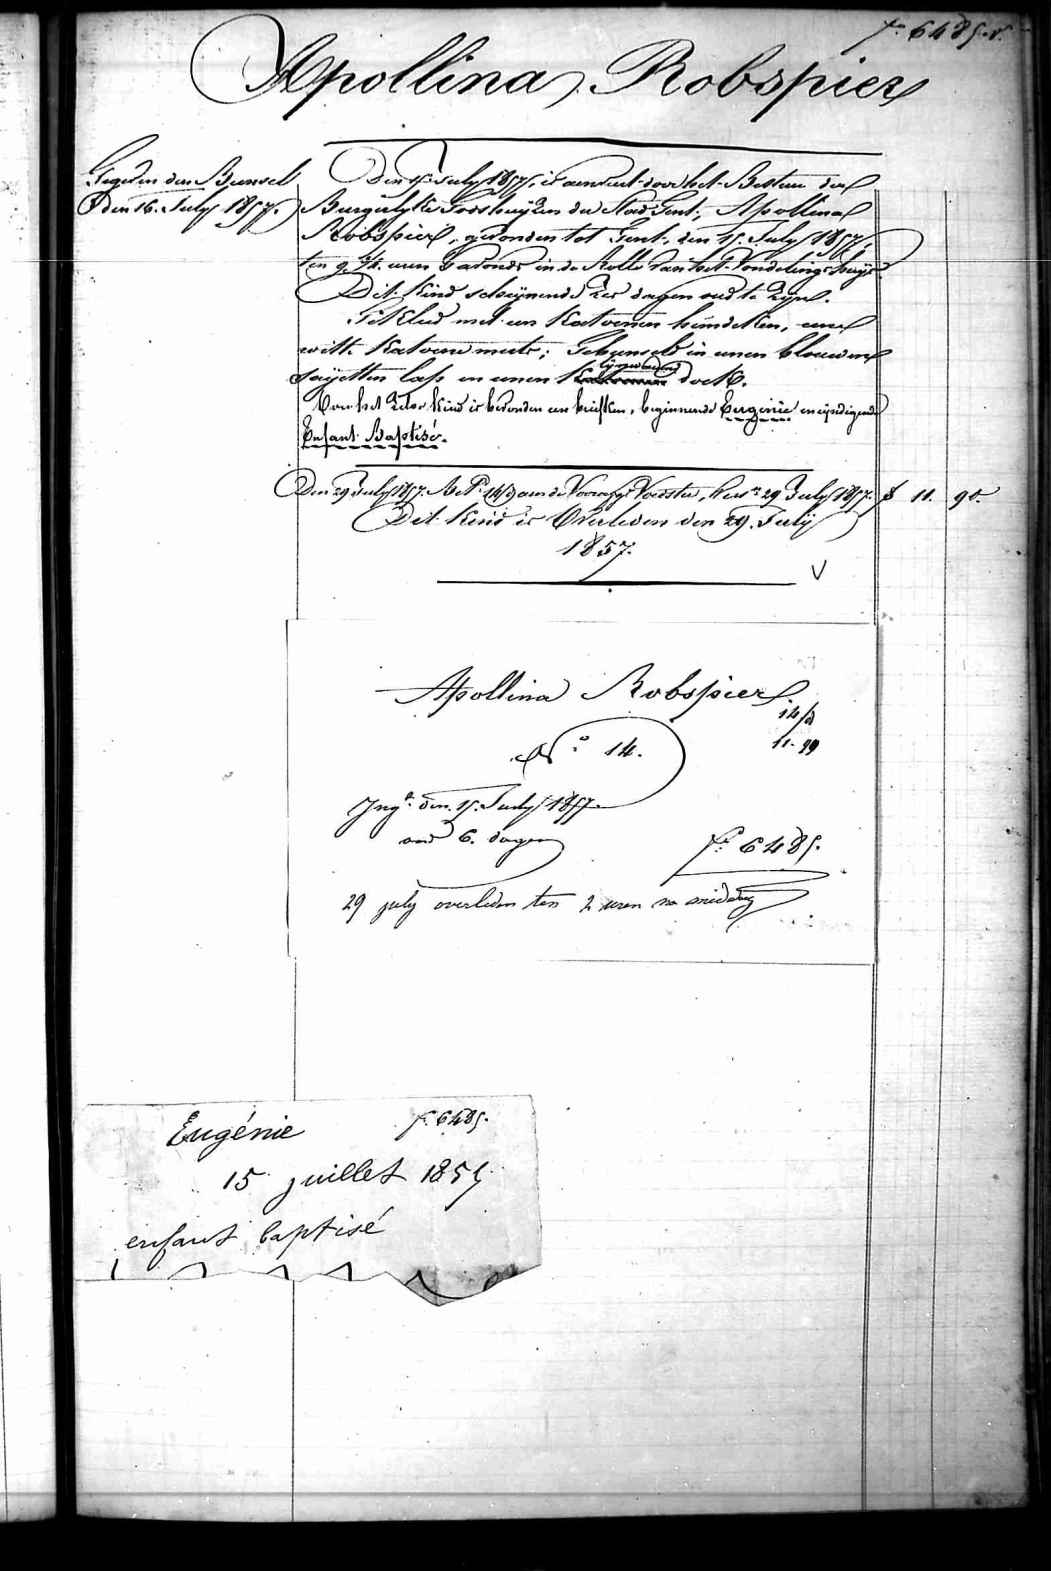 f.º 6485. v.
Apollina Robspier
Den 15 July 1857, is aenveert door het Bestuer der
Burgerlyke Godshuyzen der Stad Gent, Apollina
Robspier, gevonden tot Gent, den 15 July 1857,
ten 9 uren 's avonds in de Rolle van het Vondelingshuys.
Dit kind schynende zes dagen oud te zyn.
Gekleed met een katoenen hemdeken, eene
witte katoene muts; Gebunseld in eenen blauwen
sayetten lap en eenen lynwaden doek.
Van het zelve kind is bevonden een briefken, beginnende Eugénie en eyndigende
Enfant Baptisé.
den Bunsel
Den 16. July 1857.
Den 29 July 1857. Bet. 14/d aen de Voedster, 29 July 1857. f 11. 90.
Dit kind is Overleden den 29. July
1857.
V
Apollina Robspier
14/d
11-90
Nº 14.
Ing. den 15. July 1857.
oud 6. dagen
fº 6485.
29 july overleden ten 2 uren na middag
Eugénie f. 6485.
15 juillet 1857
enfant baptisé